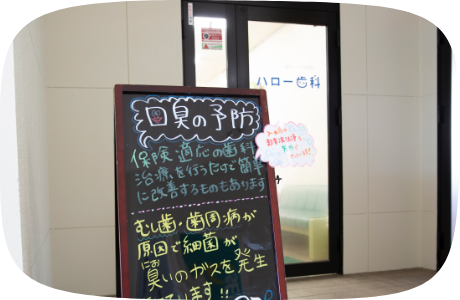 ハロー歯科
口臭の予防
保険適応の歯科
治療を行うだけで簡単
に改善するものもあります
むし歯・歯周病が
原因で細菌が
にお
臭いのガスを発生
ます!!